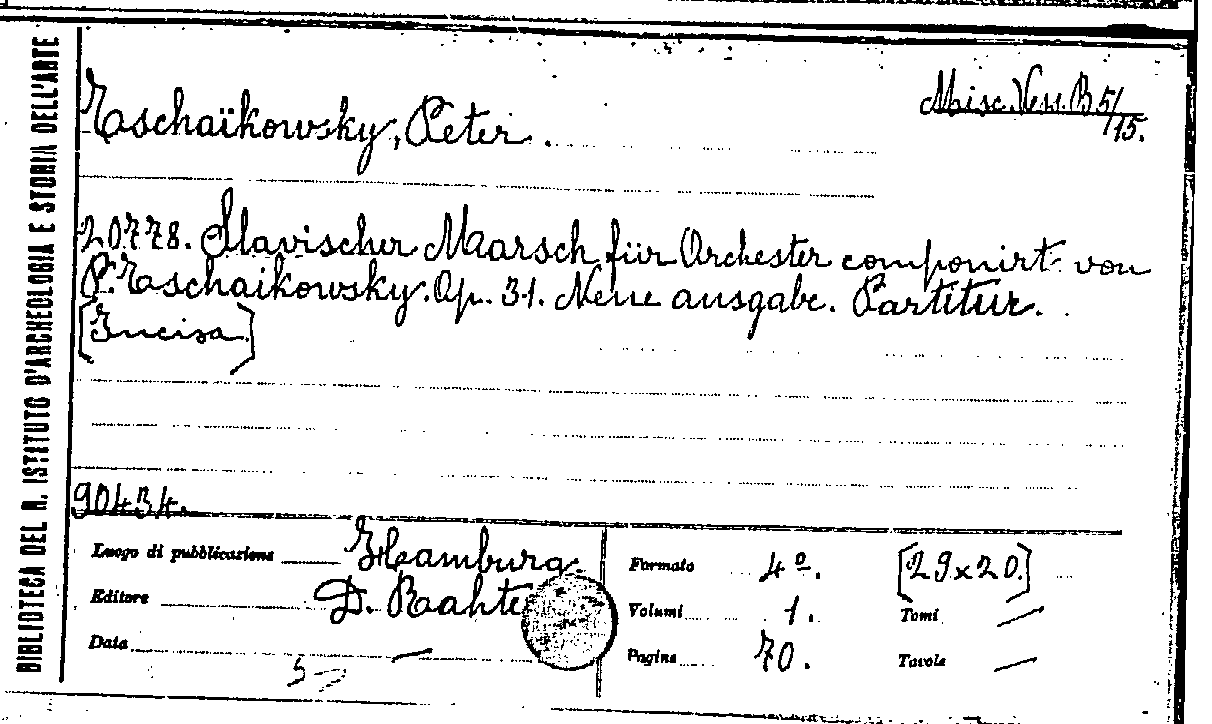 BIBLIOTECA DEL R. ISTITUTO D'ARCHEOLOGIA E STORIA DELL'ARTE
Misc. Vess. B 5/15.
Tschaïkowsky, Peter.
20778. Slavischer Maarsch für Orchester componirt von
P. Tschaikowsky. Op. 31. Neue ausgabe. Partitur.
[Incisa.]
90434.
Luogo di pubblicazione Hamburg. Formato 4º. [29x20.]
Editore D. Rahter Volumi 1. Tomi —
Data — Pagine 70. Tavole —